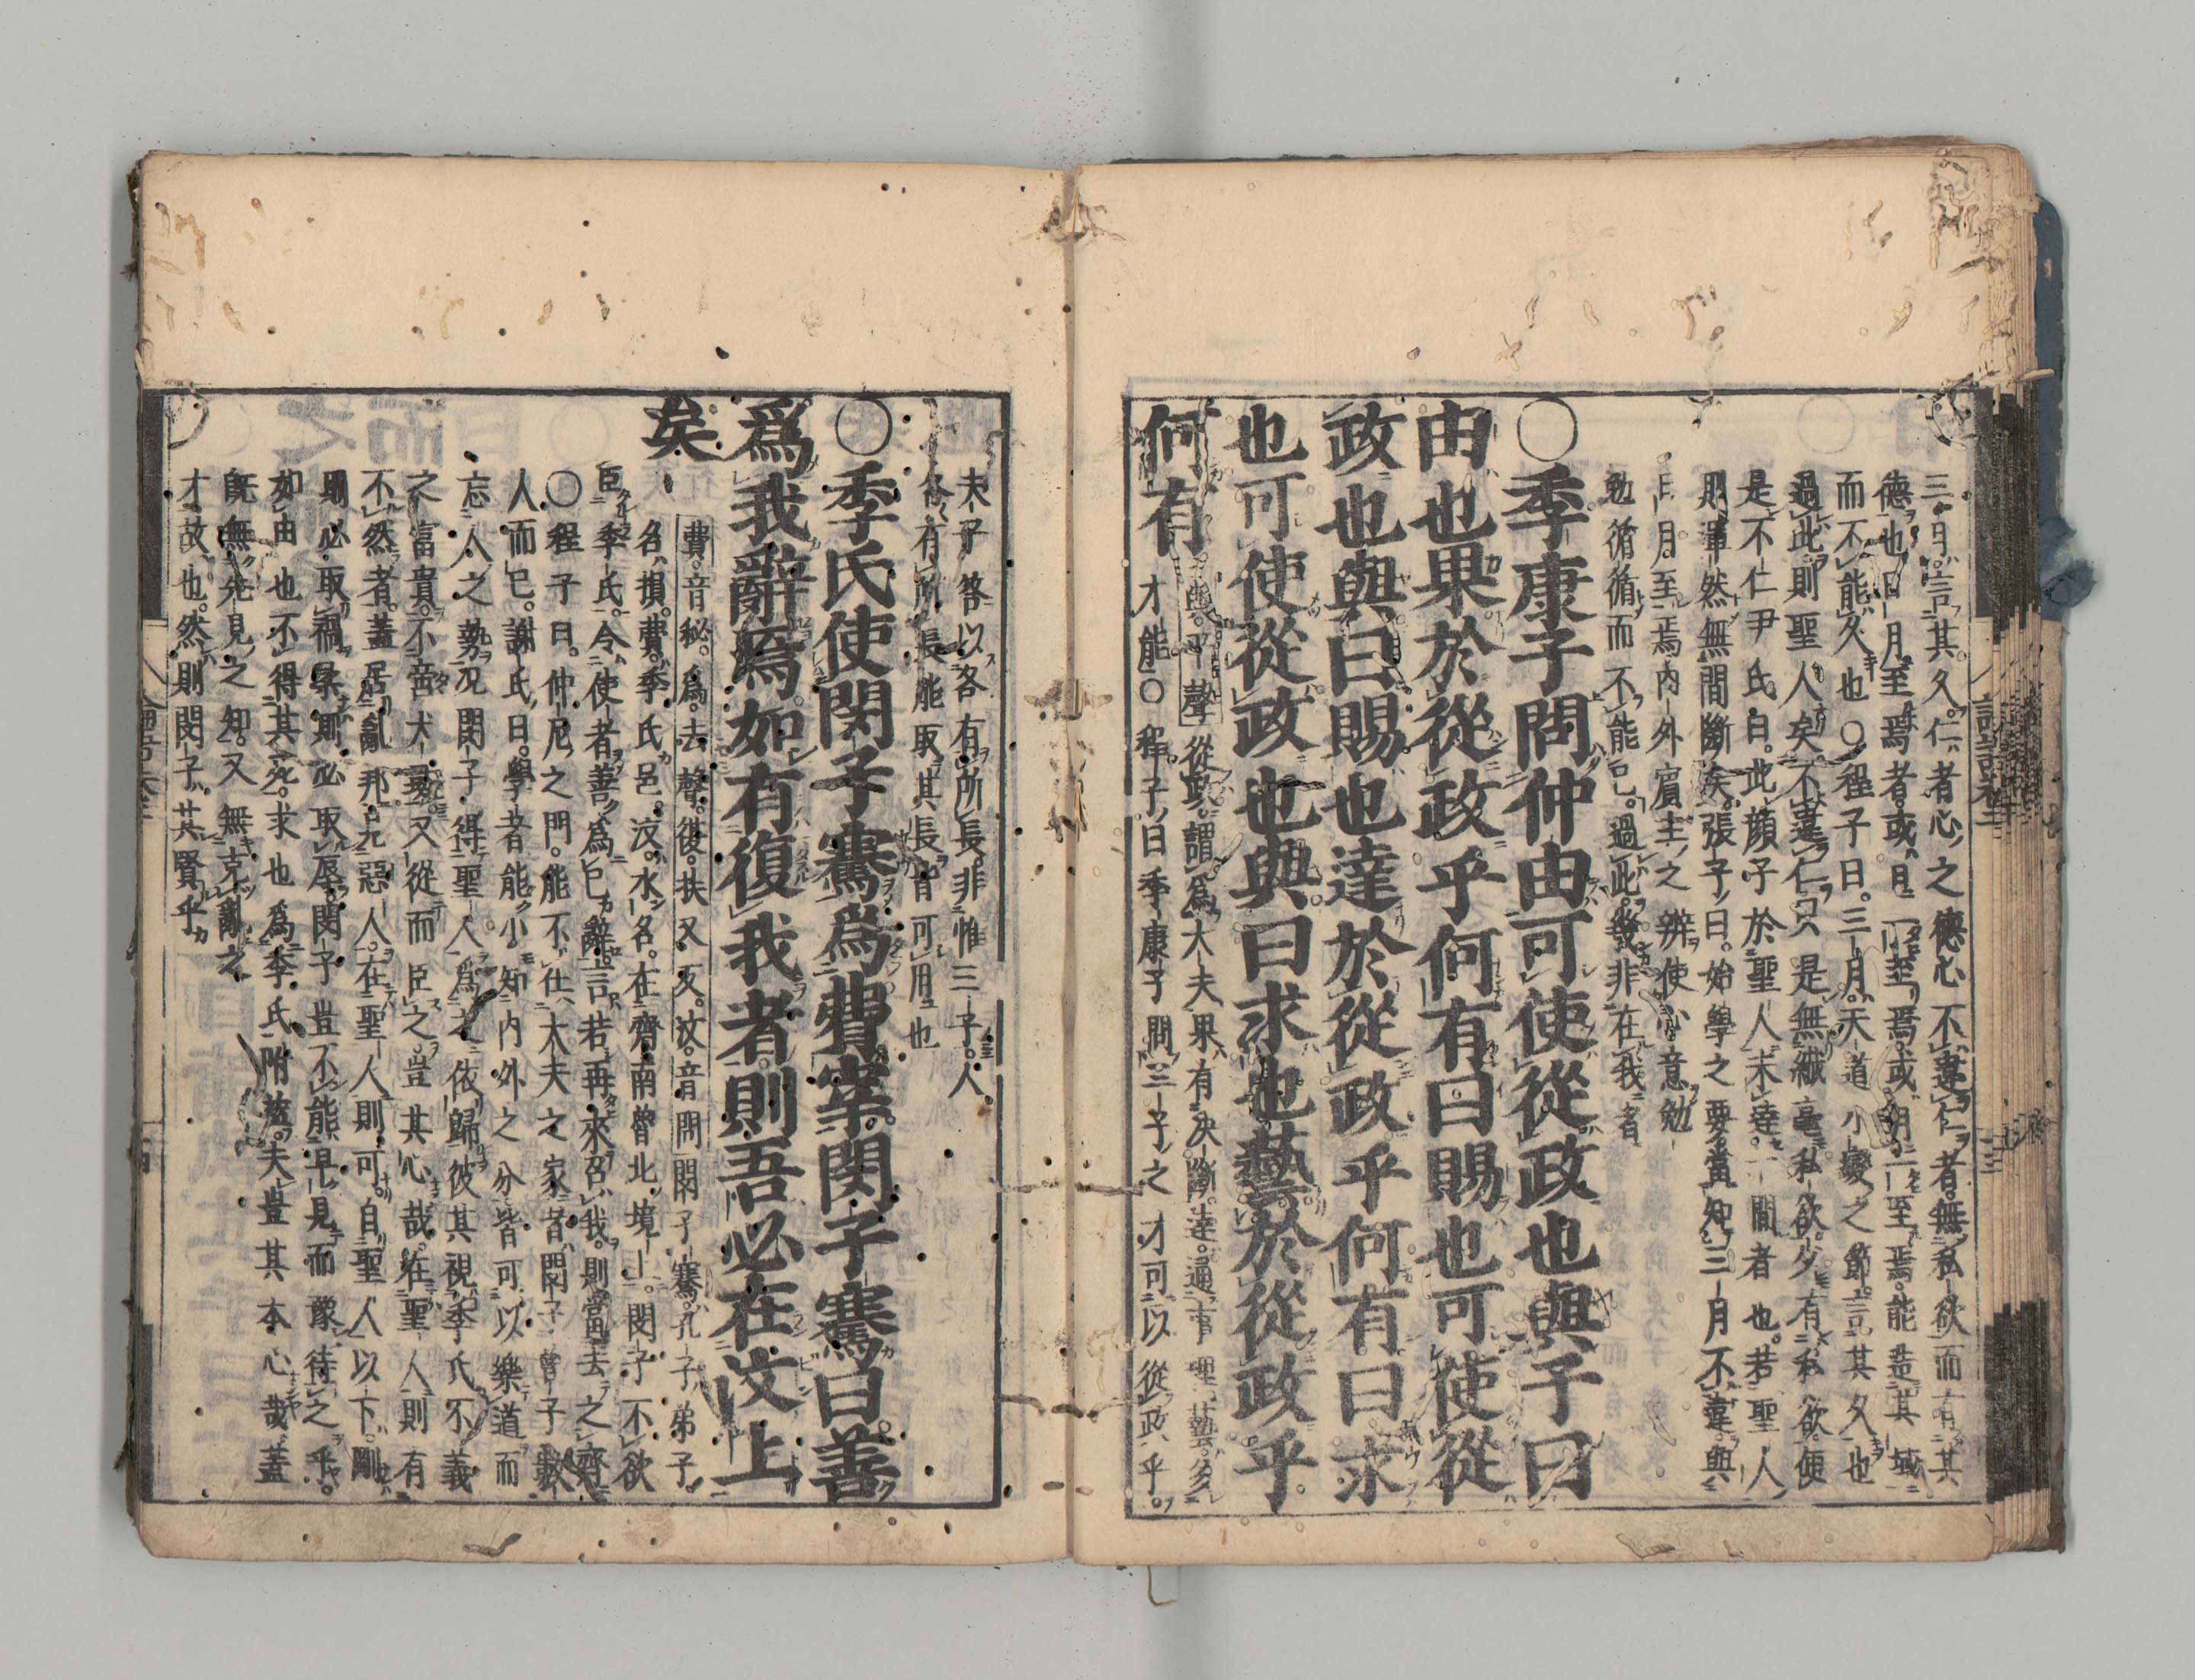 三月言其久仁者心之德心不違仁者無私欲而有其
德也日月至焉者或日一至焉或月一至焉能造其域
而不能久也○程子曰三月天道小變之節言其久也
過此則聖人矣不違仁只是無纖毫私欲少有私欲便
是不仁尹氏曰此顏子於聖人未達一間者也若聖人
則渾然無間斷矣張子曰始學之要當知三月不違與
日月至焉內外賓主之辨使心意勉
勉循循而不能已過此幾非在我者
○季康子問仲由可使從政也與子曰
由也果於從政乎何有曰賜也可使從
政也與曰賜也達於從政乎何有曰求
也可使從政也與曰求也藝於從政乎
何有
與平聲從政謂為大夫果有決斷達通事理藝多
才能○程子曰季康子問三子之才可以從政乎
夫子答以各有所長非惟三子人
各有所長能取其長皆可用也
○季氏使閔子騫爲費宰閔子騫曰善
爲我辭焉如有復我者則吾必在汶上
矣
費音秘爲去聲復扶又反汶音問閔子騫孔子弟子
名損費季氏邑汶水名在齊南魯北境上閔子不欲
臣季氏令使者善爲己辭言若再來召我則當去之齊
○程子曰仲尼之門能不仕大夫之家者閔子曾子數
人而已謝氏曰學者能小知內外之分皆可以樂道而
忘人之勢況閔子得聖人爲之依歸彼其視季氏不義
之富貴不啻犬彘又從而臣之豈其心哉在聖人則有
不然者蓋居亂邦見惡人在聖人則可自聖人以下剛
則必取禍柔則必取辱閔子豈不能早見而豫待之乎
如由也不得其死求也爲季氏附益夫豈其本心哉蓋
既無先見之知又無克亂之
才故也然則閔子其賢乎